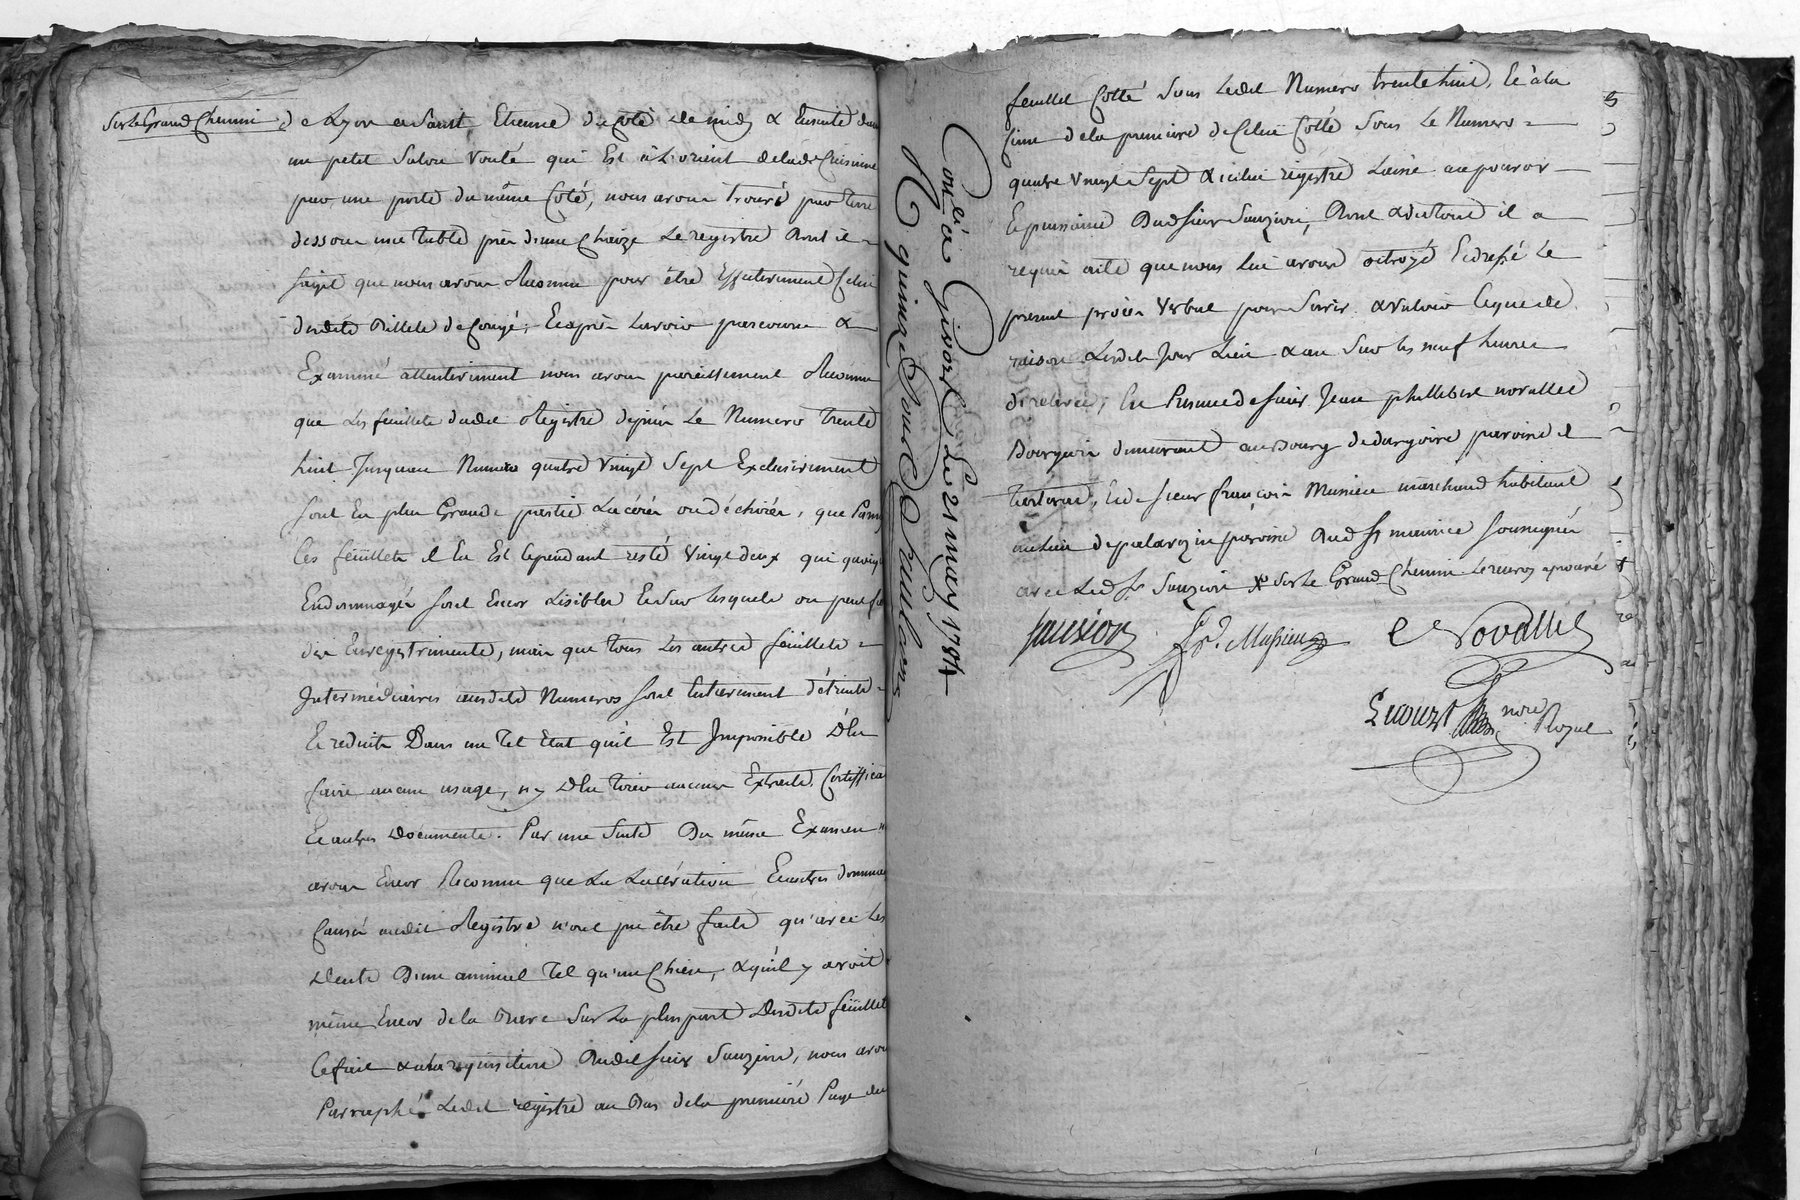 Sur le Grand Chemin
de Lyon a Saint Etienne du Coté de midy & Ensuitte dans
un petit Salon Vouté qui Est a L'orient de lade Cuisinne
par une porte du même Coté, nous avons trouvé par terre
dessous une table près d'une Chaize Le registre dont il
sagit que nous avons Reconnu pour être Effectivement Celui
desdits Billets de Congé; Et après L'avoir parcouru &
Examiné attentivement nous avons pareillement Reconnu
que Les feuillets dudit Registre depuis Le Numero trente
huit Jusquau Numero quatre Vingt Sept Exclusivement
sont En plus Grande partie Lacérés ou déchirés, que Parmy
Ces feüillets il En Est Cependant resté Vingt deux qui quoiqu
Endommagés sont Encor Lisibles Et sur lesquels on peut
des Enregistrements, mais que tous Les autres feüillets
Intermédiaires auxdits Numeros sont Entierement détruits
Et reduits Dans un tel Etat qu'il Est Impossible d'En
faire aucun usage, n'y d'En tirer aucuns Extraits, Certifficats
Et autres documents. Par une Suite du même Examen
avons Encor Reconnu que La Lacération Et autres dommages
Causés audit Registre n'ont pu être faits qu'avec Les
dents d'un animal tel qu'un Chien, & qu'il y avoit
même Encor de la Bave Sur La pluspart desdits feüillets
Ce fait & a la requisition dudit Sieur Sauzion, nous avons
Parraphé Ledit registre au Bas de la première Page du
Conlé a Givors Le 21 may 1784
R quinze Sous
feuillet Cotté Sous Ledit Numero trente huit, Et à la
fin de la premiere de Celui Cotté Sous Le Numero
quatre Vingt Sept & icelui régistre Laissé au pouvoir
Et puissance dudit Sieur Sauzion, dont & du tout il a
requis acte que nous lui avons octroyé Et dressé Le
present procès Verbal pour Servir & valoir Ce que de
raison Lesdits Jour Lieu & an Sur les neuf heures
de relevée, En Presence de Sieur Jean phillibert novallet
Bourgeois demeurant au Bourg de dargoire paroisse de
tartaras, Et de Sieur françois Massieu marchand habitant
au Lieu de palavezin paroisse dud St maurice Soussignés
avec Led Sr Sauzion X Sur Le Grand Chemin Le renvoy aprouvé
Sauzion
fs. Massieu
Novallet
nore Royal